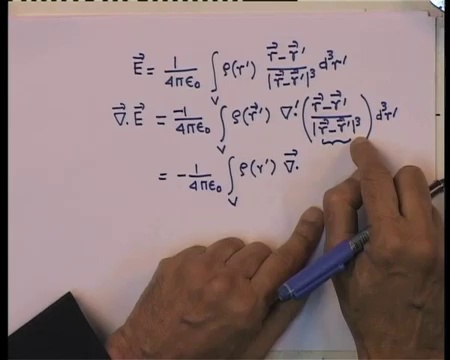 E⃗ = 1/4πϵ₀ ∫_V ρ(r′) (r⃗ − r⃗′)/|r⃗ − r⃗′|³ d³r′
∇⃗. E⃗ = −1/4πϵ₀ ∫_V ρ(r⃗′) ∇⃗′. ((r⃗ − r⃗′)/|r⃗ − r⃗′|³) d³r′
= − 1/4πϵ₀ ∫_V ρ(r′) ∇⃗.